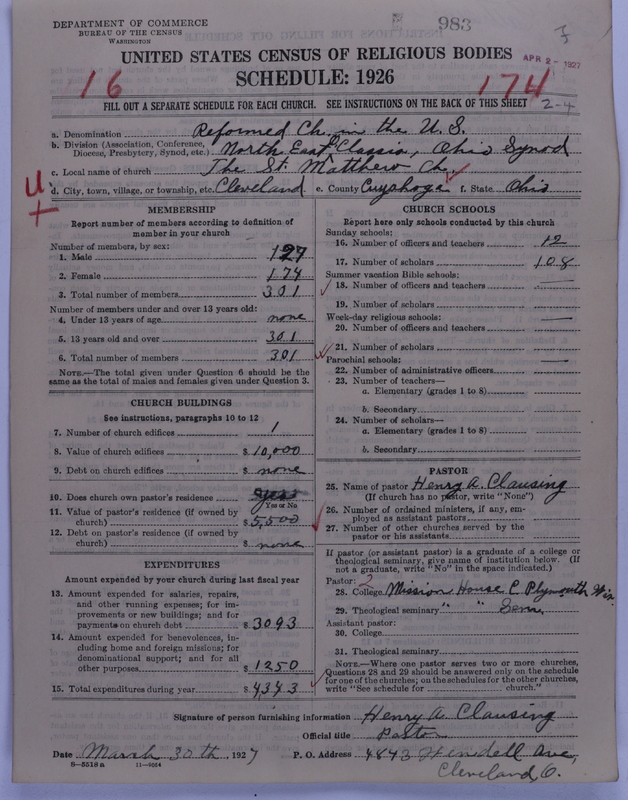 DEPARTMENT OF COMMERCE
BUREAU OF THE CENSUS
WASHINGTON
983
UNITED STATES CENSUS OF RELIGIOUS BODIES
APR 2 - 1927
SCHEDULE: 1926
16
174
FILL OUT A SEPARATE SCHEDULE FOR EACH CHURCH. SEE INSTRUCTIONS ON THE BACK OF THIS SHEET
2-4
a. Denomination Reformed Ch. in the U.S.
b. Division (Association, Conference, Diocese, Presbytery, Synod, etc.) North East Classis, Ohio Synod
c. Local name of church The St. Matthew Ch.
d. City, town, village, or township, etc. Cleveland e. County Cuyahoga f. State Ohio
MEMBERSHIP
Report number of members according to definition of
member in your church
Number of members, by sex:
1. Male 127
2. Female 174
3. Total number of members 301
Number of members under and over 13 years old:
4. Under 13 years of age none
5. 13 years old and over 301
6. Total number of members 301
NOTE.—The total given under Question 6 should be the
same as the total of males and females given under Question 3.
CHURCH BUILDINGS
See instructions, paragraphs 10 to 12
7. Number of church edifices 1
8. Value of church edifices $ 10,000
9. Debt on church edifices $ none
10. Does church own pastor's residence yes
Yes or No
11. Value of pastor's residence (if owned by
church) $ 5,500
12. Debt on pastor's residence (if owned by
church) $ none
EXPENDITURES
Amount expended by your church during last fiscal year
13. Amount expended for salaries, repairs,
and other running expenses; for im-
provements or new buildings; and for
payments on church debt $ 3093
14. Amount expended for benevolences, in-
cluding home and foreign missions; for
denominational support; and for all
other purposes $ 1250
15. Total expenditures during year $ 4343
CHURCH SCHOOLS
Report here only schools conducted by this church
Sunday schools:
16. Number of officers and teachers 12
17. Number of scholars 108
Summer vacation Bible schools:
18. Number of officers and teachers —
19. Number of scholars
Week-day religious schools: —
20. Number of officers and teachers
21. Number of scholars
Parochial schools: —
22. Number of administrative officers
23. Number of teachers—
a. Elementary (grades 1 to 8)
b. Secondary
24. Number of scholars—
a. Elementary (grades 1 to 8)
b. Secondary
PASTOR
25. Name of pastor Henry A. Clausing
(If church has no pastor, write "None")
26. Number of ordained ministers, if any, em-
ployed as assistant pastors
27. Number of other churches served by the
pastor or his assistants
If pastor (or assistant pastor) is a graduate of a college or
theological seminary, give name of institution below. (If
not a graduate, write "No" in the space indicated.)
Pastor: 2
28. College Mission House C. Plymouth Wis.
29. Theological seminary " " Sem.
Assistant pastor:
30. College
31. Theological seminary
NOTE.—Where one pastor serves two or more churches,
Questions 28 and 29 should be answered only on the schedule
for one of the churches; on the schedules for the other churches,
write "See schedule for church."
Signature of person furnishing information Henry A. Clausing
Official title Pastor
Date March 30th, 1927 P. O. Address 4843 Ave,
8—5518 a 11—9064
Cleveland, O.